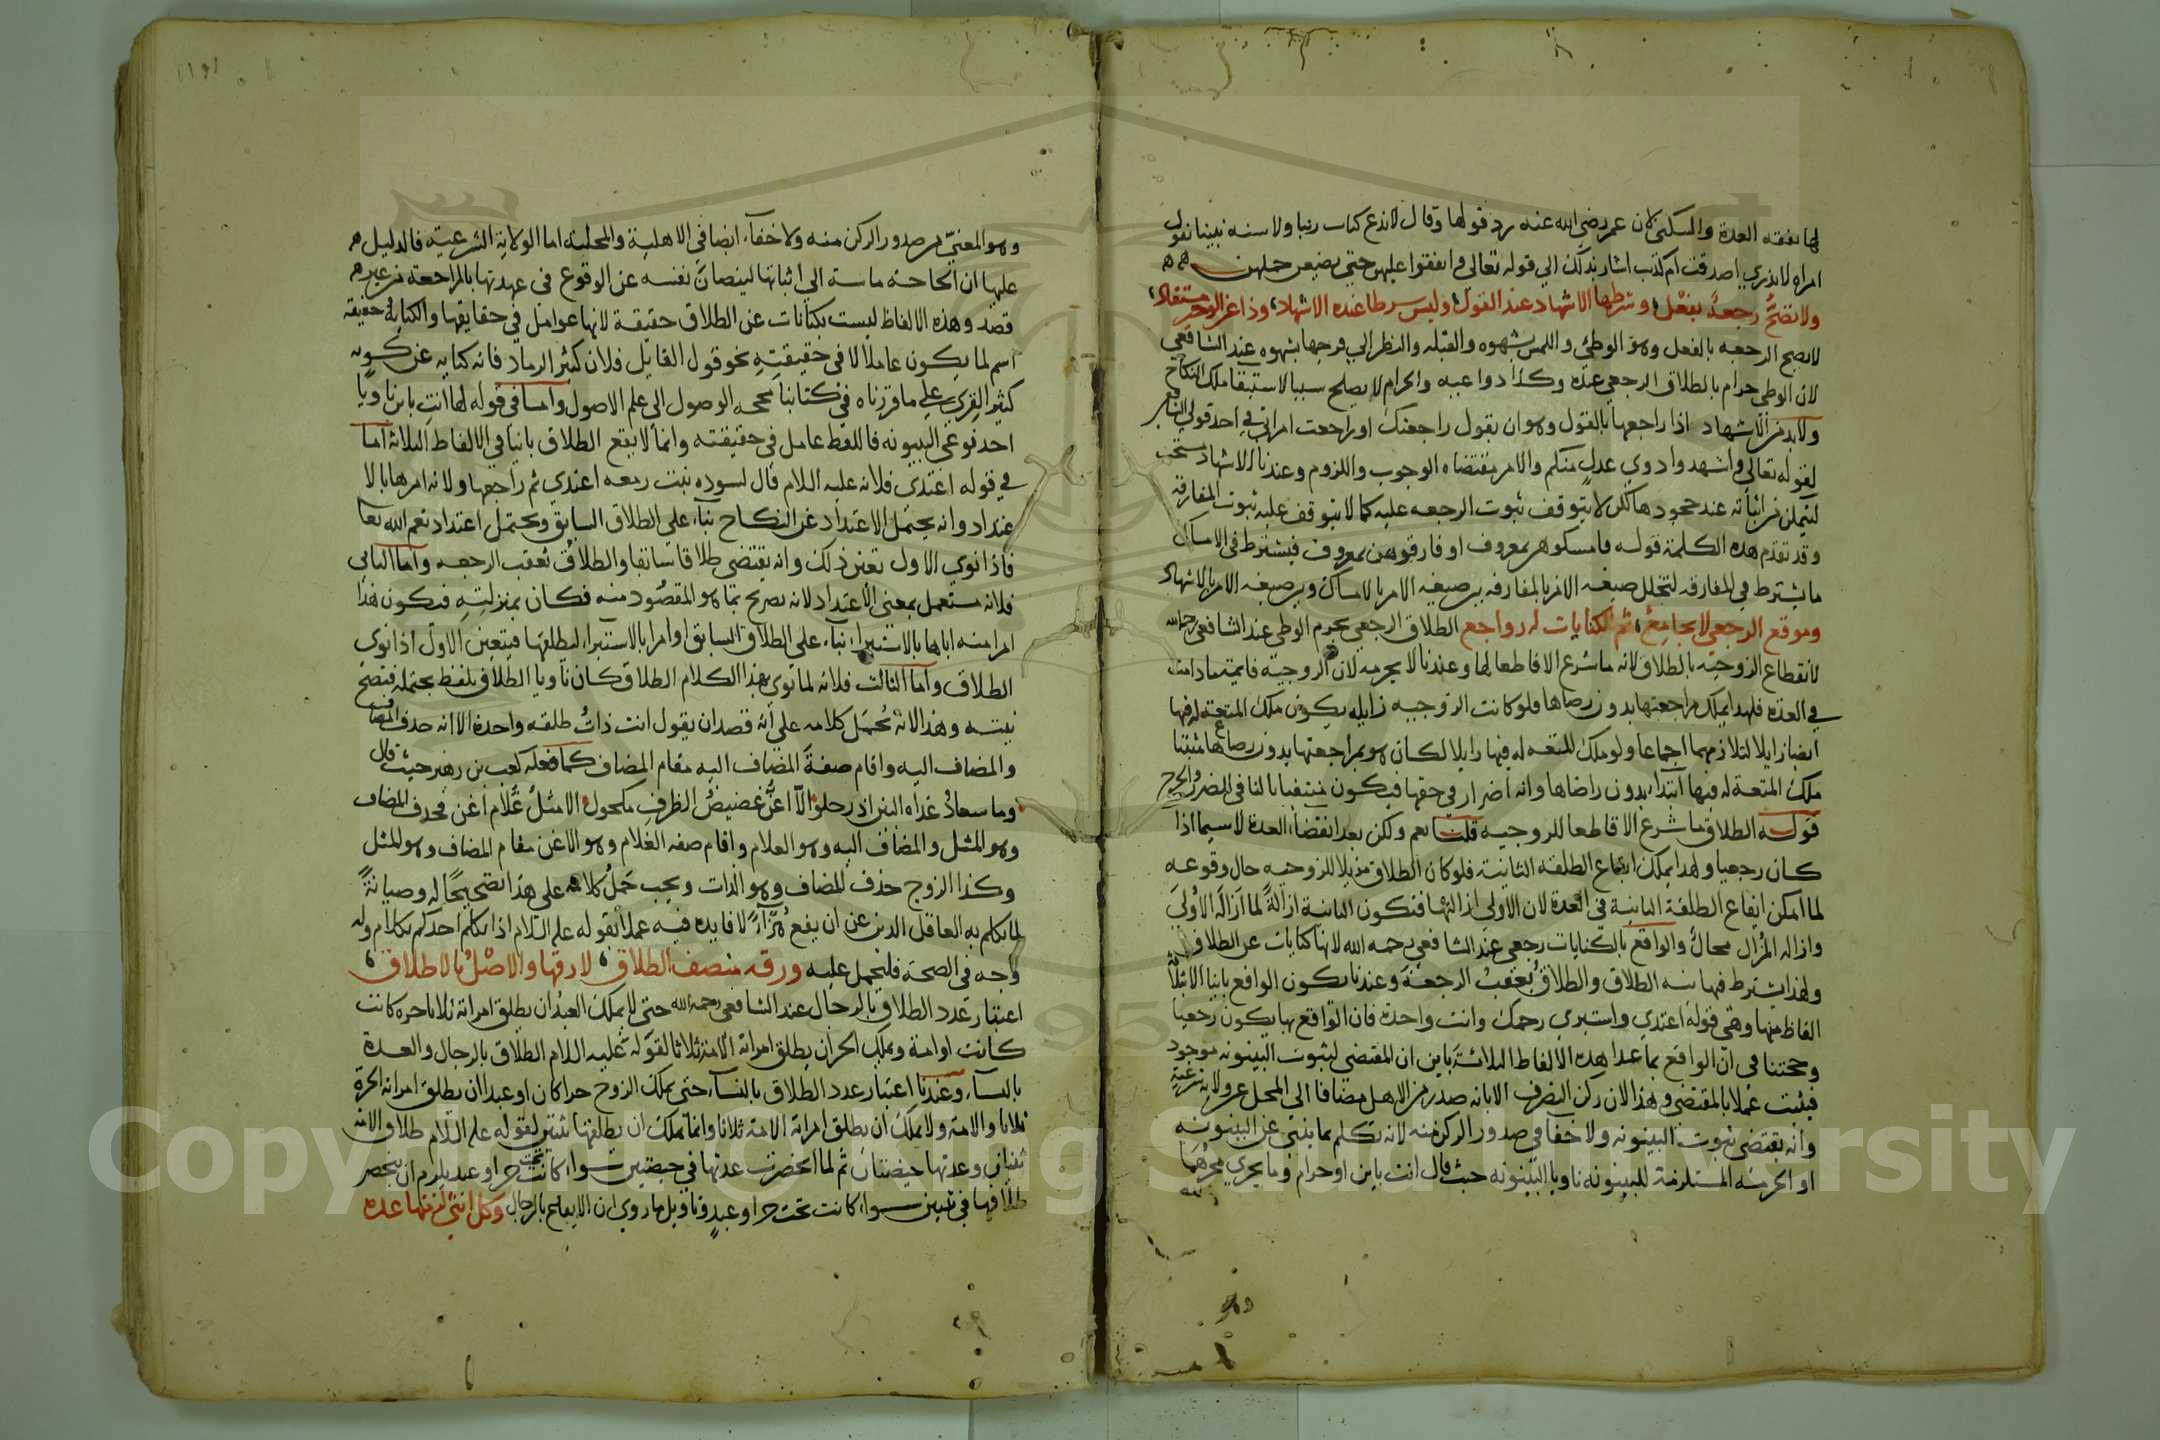 لها نفقه العدة والسكنى لان عمر رضي الله عنه رد قولها وقال لا ندع كتاب ربنا ولا سنه نبينا بقول
امراه لا ندري اصدقت ام كذبت اشار بذلك الى قوله تعالى وانفقوا عليهن حتى يضعن حملهن
ولا تصح رجعة بفعل وشرطها الاشهاد عند القول وليس شرطا عنده الاشهاد وذا عن
لا يصح الرجعه بالفعل وهو الوطئ واللمس بشهوه والقبله والنظر الى فرجها بشهوه عند الشافعي
لان الوطى حرام بالطلاق الرجعي عنده وكذا دواعيه والحرام لا يصلح سببا لاستبقا ملك النكاح
ولابد من الاشهاد اذا راجعها بالقول وهو ان يقول راجعتك او راجعت امراتي في احد قولي الشافعي
لقوله تعالى واشهدوا ذوي عدل منكم والامر مقتضاه الوجوب واللزوم وعندنا الاشهاد مستحب
ليتمكن من اثباته عند جحودها لكن لا يتوقف ثبوت الرجعه عليه كما لا يتوقف عليه ثبوت المفارقه
وقد تقدم هذه الكلمة قوله فامسكوهن بمعروف او فارقوهن بمعروف فيشترط في الامساك
ما يشترط في المفارقه لتخلل صيغه الامر بالمفارقه بين صيغه الامر بالامساك وبين صيغه الامر بالاشهاد
وموقع الرجعي لا يجامع ثم الكنايات له رواجع الطلاق الرجعي يحرم الوطى عند الشافعي رحمه الله
لانقطاع الزوجيه بالطلاق لانه ما شرع الا قاطعا لها وعندنا لا يحرمه لان الزوجيه قايمة ما دامت
في العده فلهذا يملك مراجعتها بدون رضاها فلو كانت الزوجيه زايله يكون ملك المتعة له فيها
ايضا زايلا لتلازمهما اجماعا ولو ملك المتعه له فيها زايلا لكان هو بمراجعتها بدون رضاها مثبتا
ملك المتعة له فيها ابتداء بدون رضاها وانه اضرار في حقها فيكون منتفيا بالنافي للضرر والحرج
قوله الطلاق ما شرع الا قاطعا للزوجيه قلت نعم ولكن بعد انقضاء العدة لا سيما اذا
كان رجعيا ولهذا يملك ايقاع الطلقه الثانية فلو كان الطلاق مزيلا للزوجيه حال وقوعه
لما امكن ايقاع الطلقة الثانية في العدة لان الاولى ازالتها فتكون الثانية ازالة لما ازاله الاولى
وازاله المزال محال والواقع بالكنايات رجعي عند الشافعي رحمه الله لانها كنايات عن الطلاق
ولهذا يشترط فيها نيه الطلاق والطلاق يعقب الرجعة وعندنا يكون الواقع باينا الا بثلاثة
الفاظ منها وهي قوله اعتدي واستبري رحمك وانت واحدة فان الواقع بها يكون رجعيا
وحجتنا في ان الواقع بما عدا هذه الالفاظ الثلاثة باين ان المقتضي لثبوت البينونه موجود
فيثبت عملا بالمقتضي وهذا لان ركن التصرف الابانه صدر من الاهل مضافا الى المحل عن ولاية شرعية
وانه يقتضي ثبوت البينونه ولا خفا في صدور الركن منه لانه تكلم بما ينبئ عن البينونه
او الحرمه المستلزمة للبينونه ناويا البينونه حيث قال انت باين او حرام وما يجري مجراهما
وهو المعني من صدور الركن منه ولا خفاء ايضا في الاهلية والمحلية اما الولاية الشرعية فالدليل
عليها ان الحاجة ماسة الى اثباتها لينصان نفسه عن الوقوع في عهدتها بالمراجعة من غير
قصد وهذه الالفاظ ليست بكنايات عن الطلاق حقيقة لانها عوامل في حقايقها والكنايه حقيقه
اسم لما يكون عاملا لا في حقيقته نحو قول القايل فلان كثير الرماد فانه كنايه عن كونه
كثير القرى على ما قررناه في كتابنا محجه الوصول الى علم الاصول واما في قوله لها انت باين ناويا
احد نوعي البينونه فاللفظ عامل في حقيقته وانما لا يقع الطلاق باينا في الالفاظ الثلاثة اما
في قوله اعتدي فلانه عليه السلام قال لسوده بنت زمعه اعتدي ثم راجعها ولانه امرها بالا
عتداد وانه يحتمل الاعتداد عن النكاح بناء على الطلاق السابق ويحتمل اعتداد نعم الله تعا
فاذا نوى الاول تعين ذلك وانه يقتضي طلاقا سابقا والطلاق يعقب الرجعه واما الثاني
فلانه مستعمل بمعنى الاعتداد لانه تصريح بما هو المقصود منه فكان بمنزلته فيكون هذا
امرا منه اياها بالاستبراء بناء على الطلاق السابق او امرا بالاستبراء ليطلقها فيتعين الاول اذا نوى
الطلاق واما الثالث فلانه لما نوى بهذا الكلام الطلاق كان ناويا الطلاق بلفظ يحتمله فتصح
نيته وهذا لانه يحمل كلامه على انه قصد ان يقول انت ذات طلقه واحدة الا انه حذف المضاف
والمضاف اليه واقام صفة المضاف اليه مقام المضاف كما فعله كعب بن زهير حيث قال
وما سعاد غداه البين اذ رحلوا الا اغن غضيض الطرف مكحول الا مثل غلام اغن فحذف المضاف
وهو المثل والمضاف اليه وهو الغلام واقام صفه الغلام وهو الاغن مقام المضاف وهو المثل
وكذا الزوج حذف المضاف وهو الذات ويجب حمل كلامه على هذا تصحيحا له وصيانة
لما تكلم به العاقل الدين عن ان يقع هزا لا فايده فيه عملا بقوله عليه السلام اذا تكلم احدكم بكلام وله
وجه في الصحة فليحمل عليه ورقه منصف الطلاق لا رقها والاصل بالاطلاق
اعتبار عدد الطلاق بالرجال عند الشافعي رحمه الله حتى لا يملك العبد ان يطلق امراته ثلاثا حره كانت
كانت او امة ويملك الحر ان يطلق امراته الامة ثلاثا لقوله عليه السلام الطلاق بالرجال والعدة
بالنساء وعندنا اعتبار عدد الطلاق بالنساء حتى يملك الزوج حرا كان او عبدا ان يطلق امراته الحرة
ثلاثا والامة ولا يملك ان يطلق امراته الامة ثلاثا وانما يملك ان يطلقها ثنتين لقوله عليه السلام طلاق الامه
ثنتان وعدتها حيضتان ثم لما انحصرت عدتها في حيضتين سواء كانت تحت حر او عبد يلزم ان ينحصر
طلاقها في ثنتين سواء كانت تحت حر او عبد وتاويل ما روي ان الايقاع بالرجال وكل انثى لزمتها عده